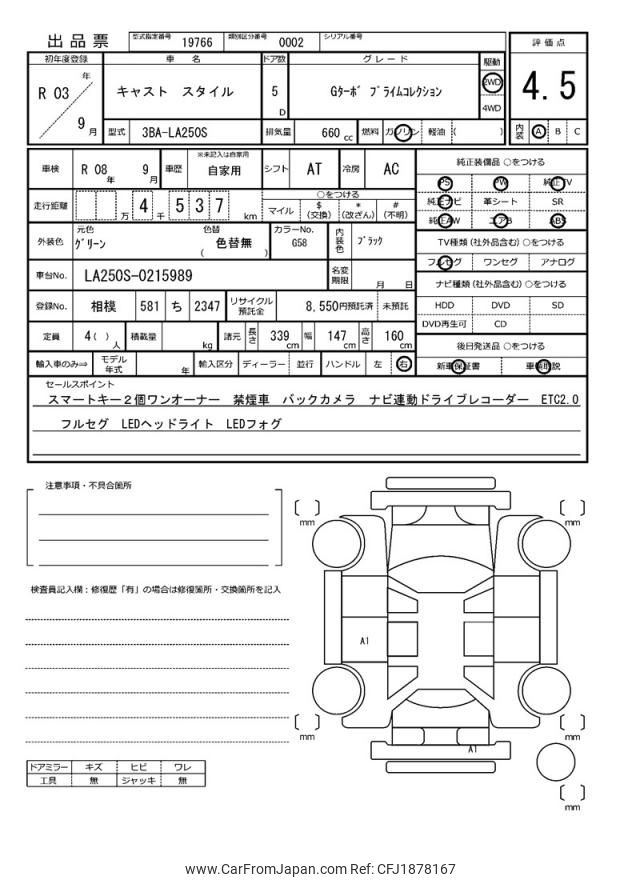 出品票 型式指定番号 19766 類別区分番号 0002 シリアル番号
初年度登録 車 名 ドア数 グレード 駆動 評価点
R 03 年 9 月 キャスト スタイル 5 D Gターボ プライムコレクション 2WD 4WD 4.5
型式 3BA-LA250S 排気量 660 cc 燃料 ガソリン 軽油 ( ) 内装 A B C
車検 R 08 年 9 月 車歴 ※未記入は自家用 自家用 シフト AT 冷房 AC 純正装備品 ○をつける
PS PW 純正TV
走行距離 万 4 千 5 3 7 km ○をつける マイル $ (交換) * (改ざん) # (不明) 純正ナビ 革シート SR
純正AW エアB ABS
外装色 元色 グリーン 色替 ( 色替無 ) カラーNo. G58 内装色 ブラック TV種類 (社外品含む) ○をつける
フルセグ ワンセグ アナログ
車台No. LA250S-0215989 名変期限 月 日 ナビ種類 (社外品含む) ○をつける
登録No. 相模 581 ち 2347 リサイクル預託金 8,550円預託済 未預託 HDD DVD SD
DVD再生可 CD
定員 4( ) 人 積載量 kg 諸元 長さ 339 cm 幅 147 cm 高さ 160 cm 後日発送品 ○をつける
輸入車のみ⇨ モデル年式 年 輸入区分 ディーラー 並行 ハンドル 左 右 新車保証書 車輌取説
セールスポイント
スマートキー2個ワンオーナー 禁煙車 バックカメラ ナビ連動ドライブレコーダー ETC2.0
フルセグ LEDヘッドライト LEDフォグ
注意事項・不具合箇所
mm mm
検査員記入欄：修復歴「有」の場合は修復箇所・交換箇所を記入
A1
mm mm
A1
ドアミラー キズ ヒビ ワレ
工具 無 ジャッキ 無
mm
www.CarFromJapan.com Ref: CFJ1878167